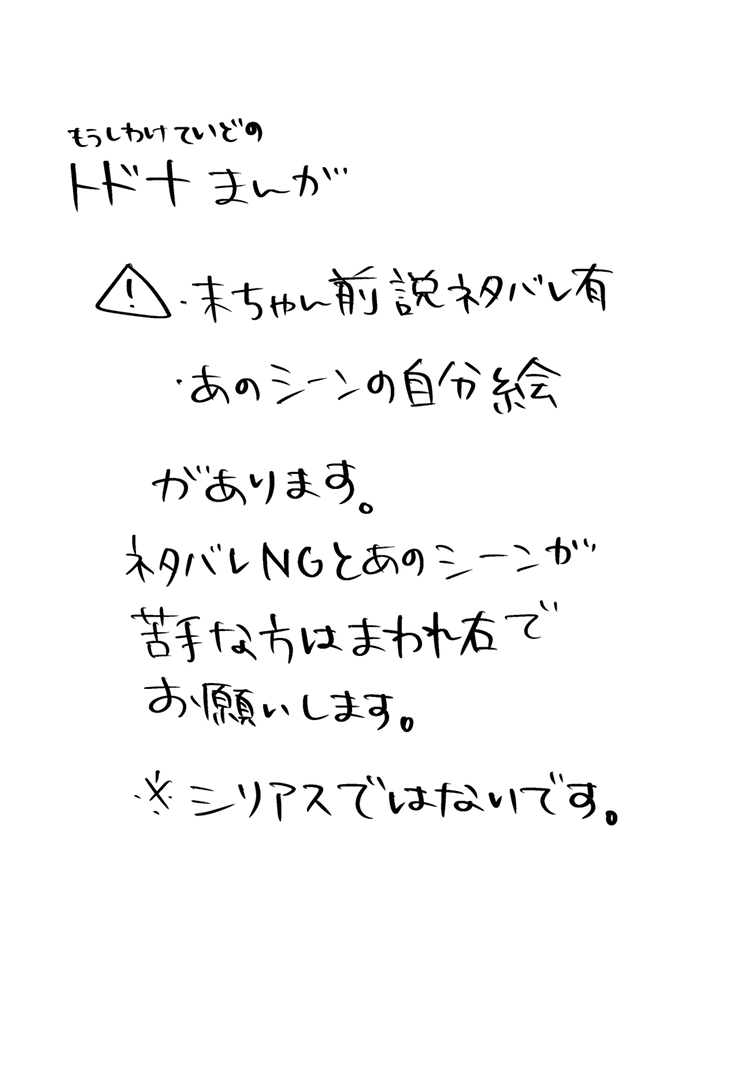 もうしわけていどの
トド十まんが
⚠・末ちゃん前説ネタバレ有
・あのシーンの自分絵
があります。
ネタバレNGとあのシーンが
苦手な方はまわれ右で
お願いします。
※シリアスではないです。